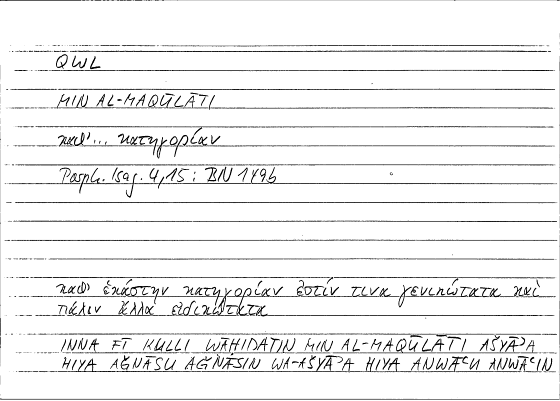 QWL
MIN AL-MAQŪLĀTI
καθ' ... κατηγορίαν
Porph. Isag. 4,15 : BN 149b
καθ' ἑκάστην κατηγορίαν ἐστίν τινα γενικώτατα καὶ
πάλιν ἄλλα εἰδικώτατα
INNA FĪ KULLI WĀḤIDATIN MIN AL-MAQŪLĀTI AŠYĀʾA
HIYA AǦNĀSU AǦNĀSIN WA-AŠYĀʾA HIYA ANWĀʿU ANWĀʿIN